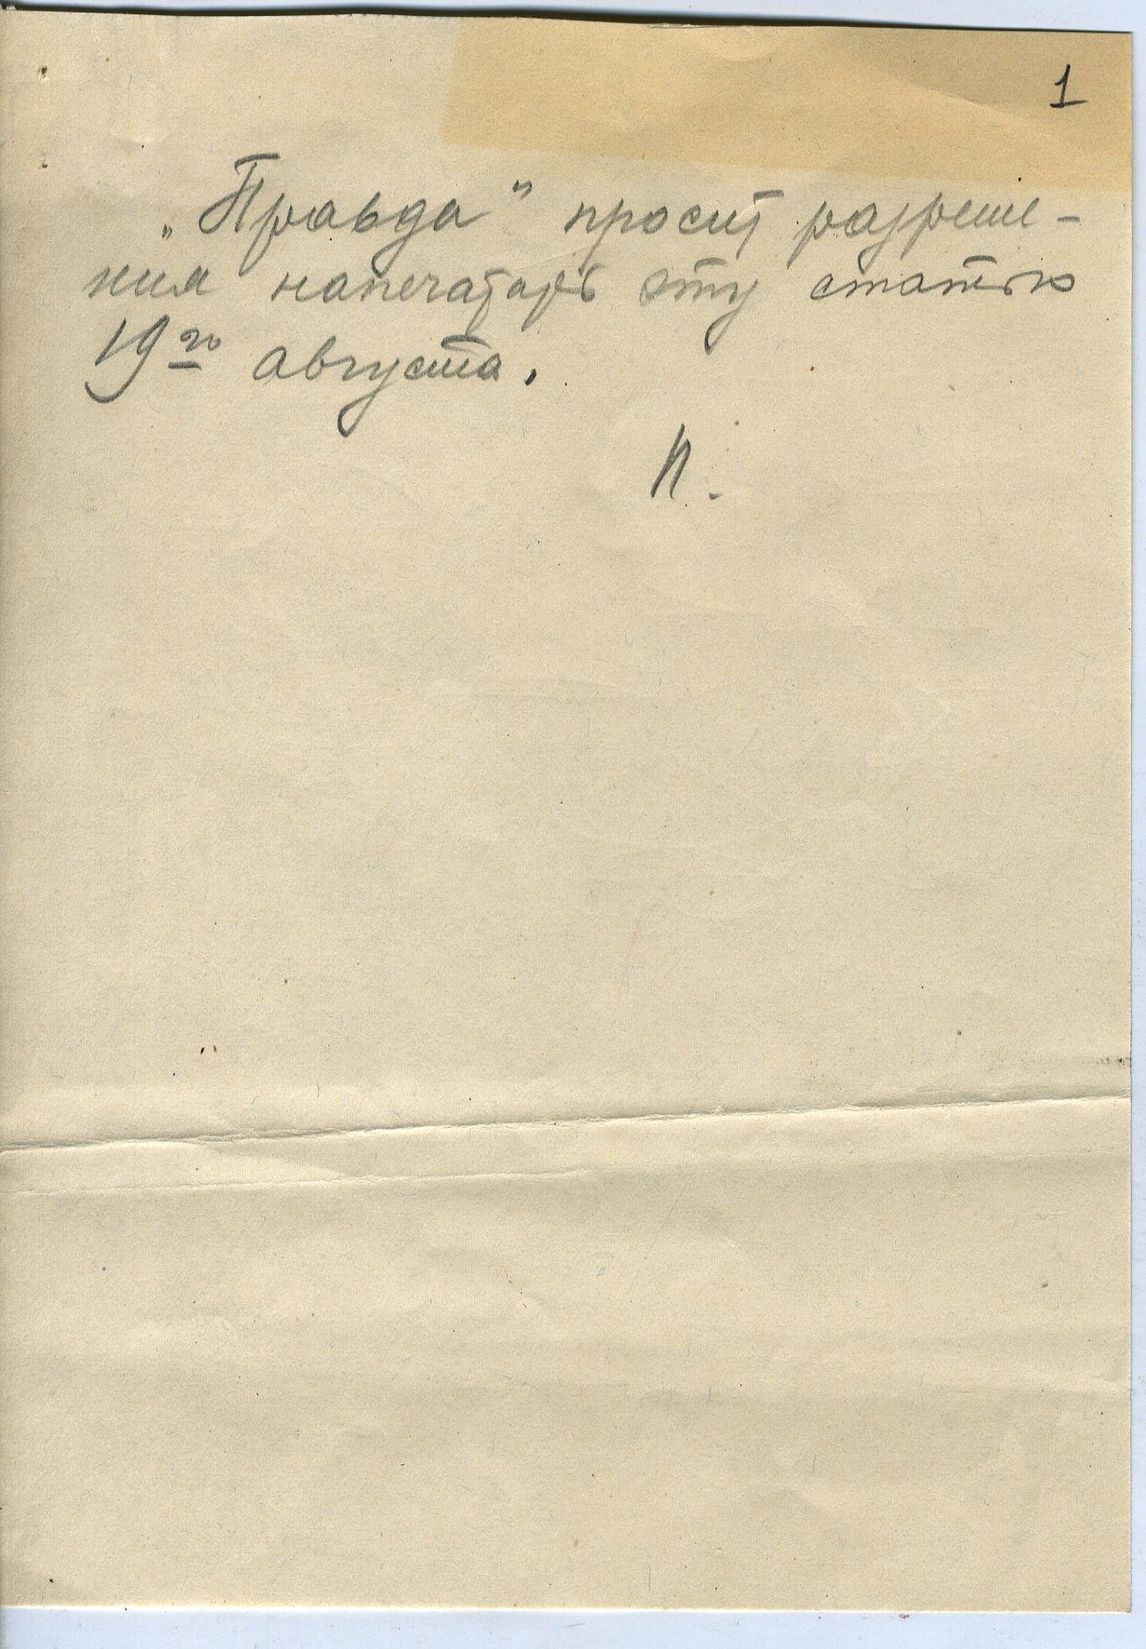 1
„Правда“ просит разреше-
ния напечатать эту статью
19го августа.
П.